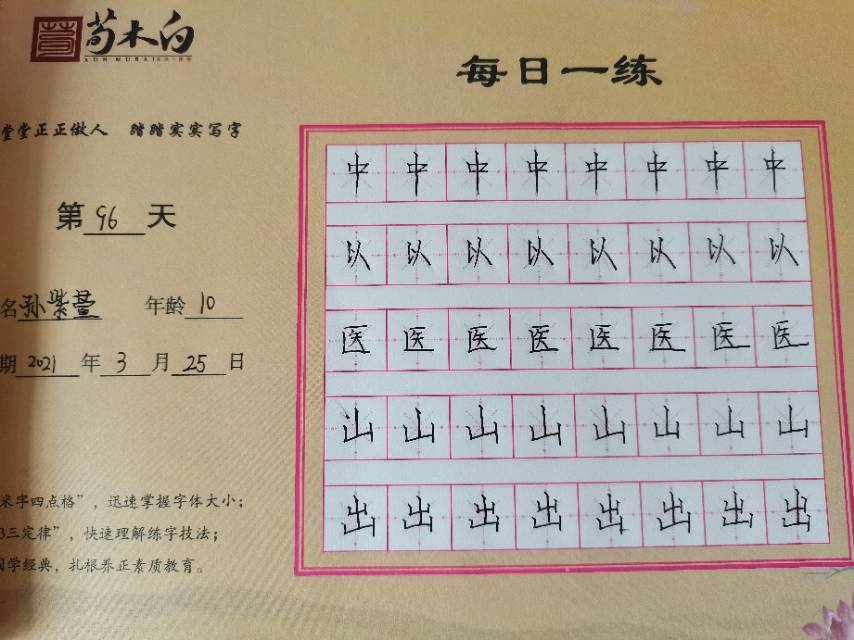 荀木白
每日一练
堂堂正正做人 踏踏实实写字
第 96 天
名 孙紫 年龄 10
期 2021 年 3 月 25 日
中 中 中 中 中 中 中 中
以 以 以 以 以 以 以 以
医 医 医 医 医 医 医 医
山 山 山 山 山 山 山 山
出 出 出 出 出 出 出 出
米字四点格”，迅速掌握字体大小；
三定律”，快速理解练字技法；
国学经典，扎根养正素质教育。